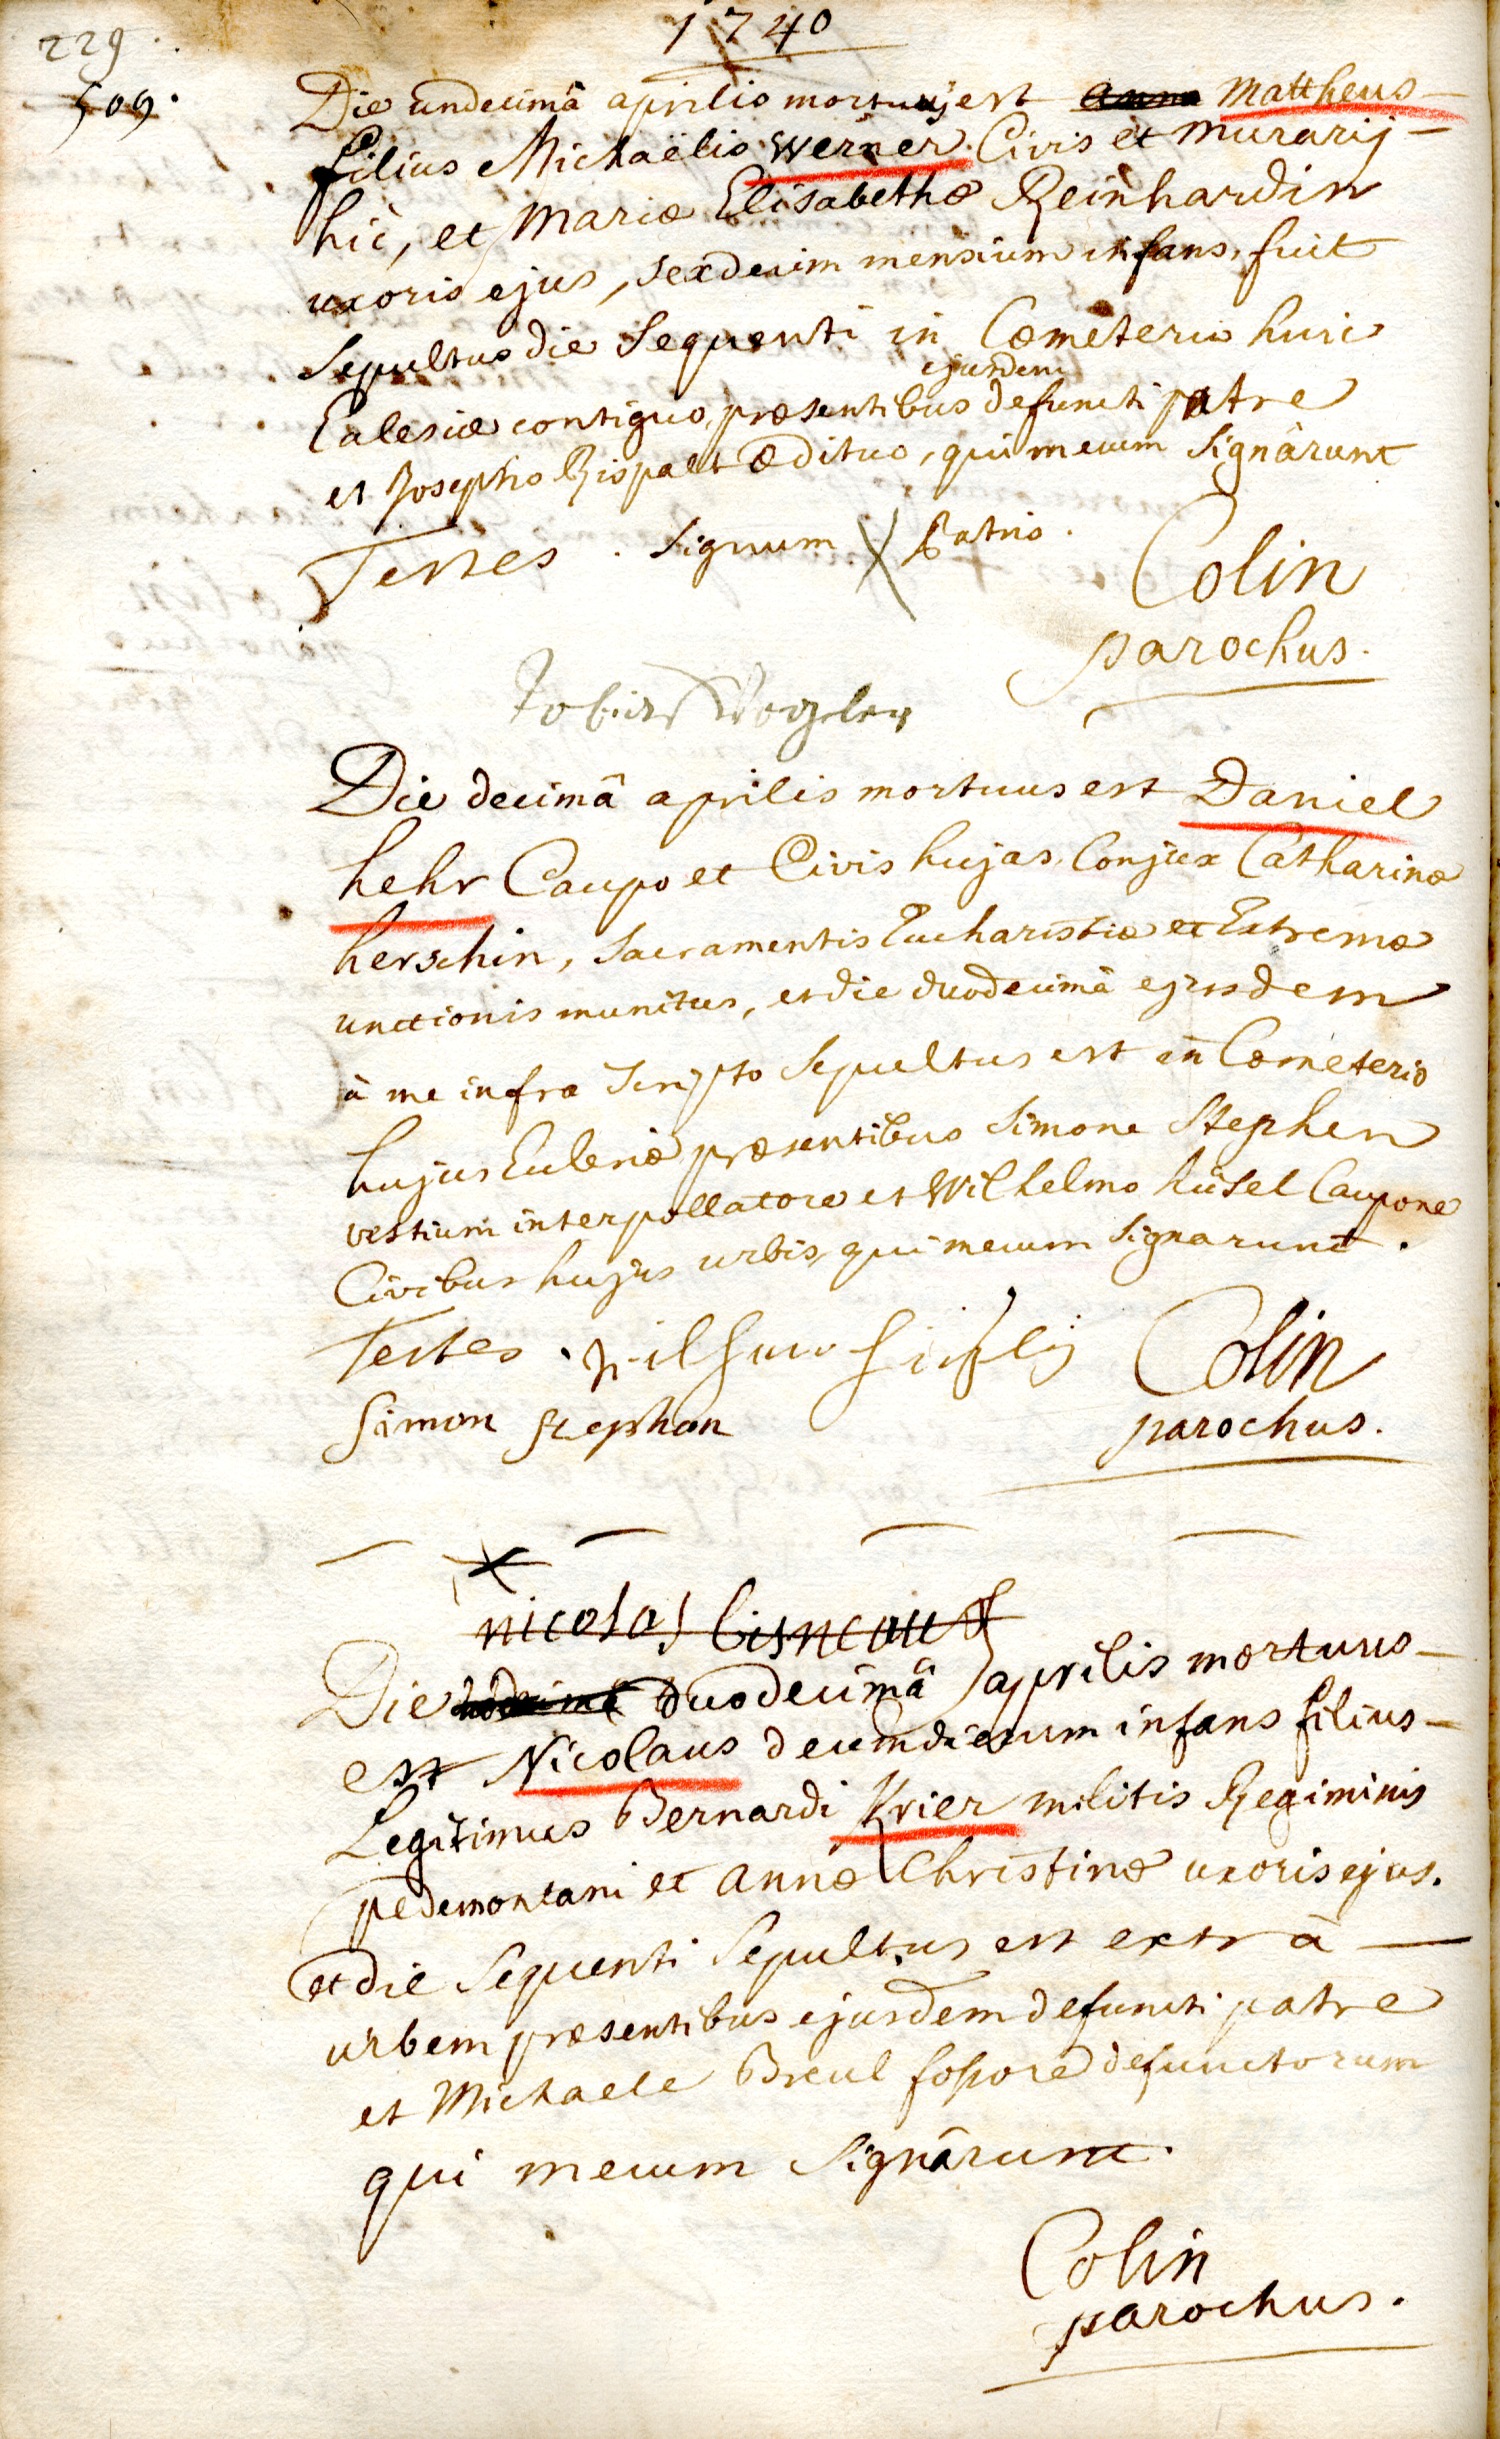 229.
1740
509.
Die undecimâ aprilis mortuus est Anna Mattheus
filius Michaëlis Werner. Civis et murarij
hic, et Mariæ Elisabethæ Reinhardin
uxoris ejus, sexdecim mensium infans, fuit
Sepultus die Sequenti in Cœmeterio huic
ejusdem
Eclesiæ contiguo, præsentibus defuncti patre
et Josepho Rispalt Ædituo, qui mecum Signârunt
Testes. Signum X Patris.
Colin
parochus.
Die decimâ aprilis mortuus est Daniel
hehr Caupo et Civis hujas Conjux Catharinæ
herschin, Sacramentis Eucharistiæ et Extremæ
unctionis munitus, et die duodecimâ ejusdem
à me infra Scripto Sepultus est in Cœmeterio
hujus Eclesiæ præsentibus Simone Stephen
vestium interpollatore et Wilhelmo hüsel Caupone
Civibus hujus urbis, qui mecum Signarunt.
Testes.
Colin
Simon Stephan
parochus.
nicolas
Die duodecimâ aprilis mortuus
est Nicolaus decem dierum infans filius
Legitimus Bernardi Krier militis Regiminis
pedemontani et Annæ Christinæ uxoris ejus.
et die Sequenti Sepultus est extrà
urbem præsentibus ejusdem defuncti patre
et Michaele Breul fossore defunctorum
qui mecum Signârunt.
Colin
parochus.